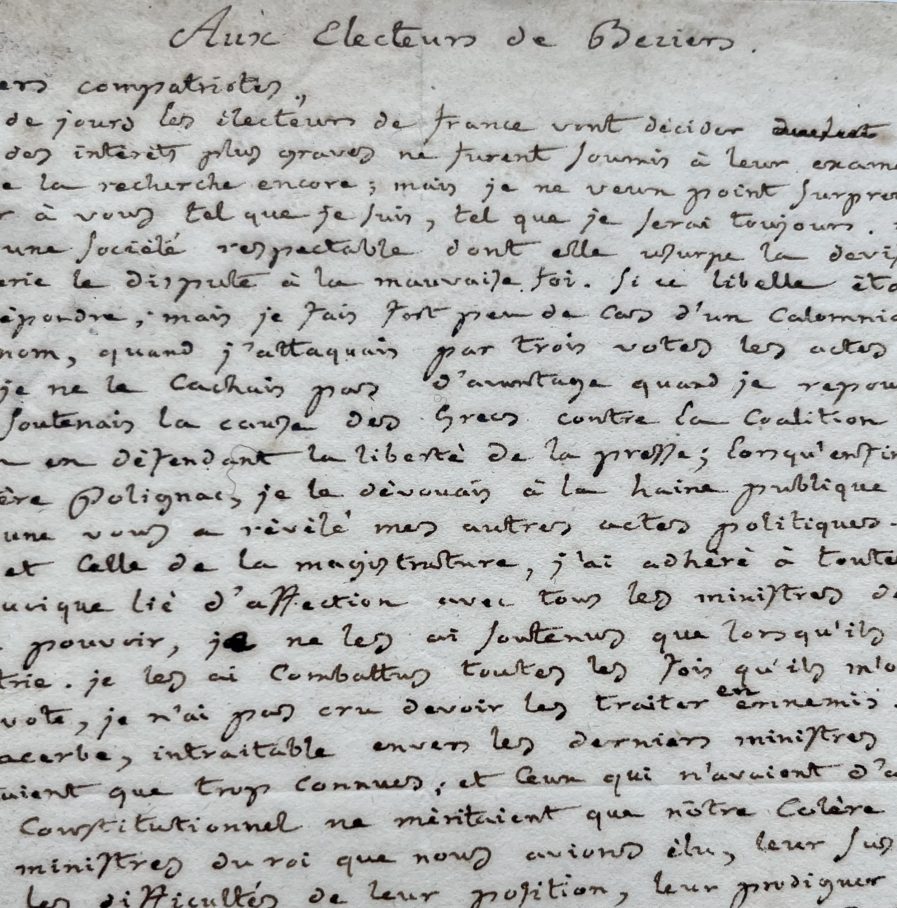 Aux Electeurs de Beziers.
ers compatriotes,
de jours les électeurs de france vont décider
des intérêts plus graves ne furent soumis à leur exame
e la recherche encore; mais je ne veux point surpre
r à vous tel que je suis, tel que je serai toujours.
une société respectable dont elle usurpe la devis
erie le dispute à la mauvaise foi. Si ce libelle éta
épondre; mais je fais fort peu de cas d'un Calomnia
nom, quand j'attaquais par trois votes les actes
je ne le Cachais pas d'avantage quand je repou
Soutenais la cause des Grecs contre la Coalition
en défendant la liberté de la presse; lorsqu'enfin
ère Polignac, je le dévouais à la haine publique
une vous a révélé mes autres actes politiques.
et Celle de la magistrature, j'ai adhéré à toute
uoique lié d'affection avec tous les ministres d
pouvoir, je ne les ai soutenus que lorsqu'ils
trie. je les ai Combattus toutes les fois qu'ils m'o
vote, je n'ai pas cru devoir les traiter en ennemis.
acerbe, intraitable envers les derniers ministres
aient que trop connues; et Ceux qui n'avaient d'a
Constitutionnel ne méritaient que nôtre Colère
ministres du roi que nous avions élu, leur sus
les difficultés de leur position, leur prodiguer